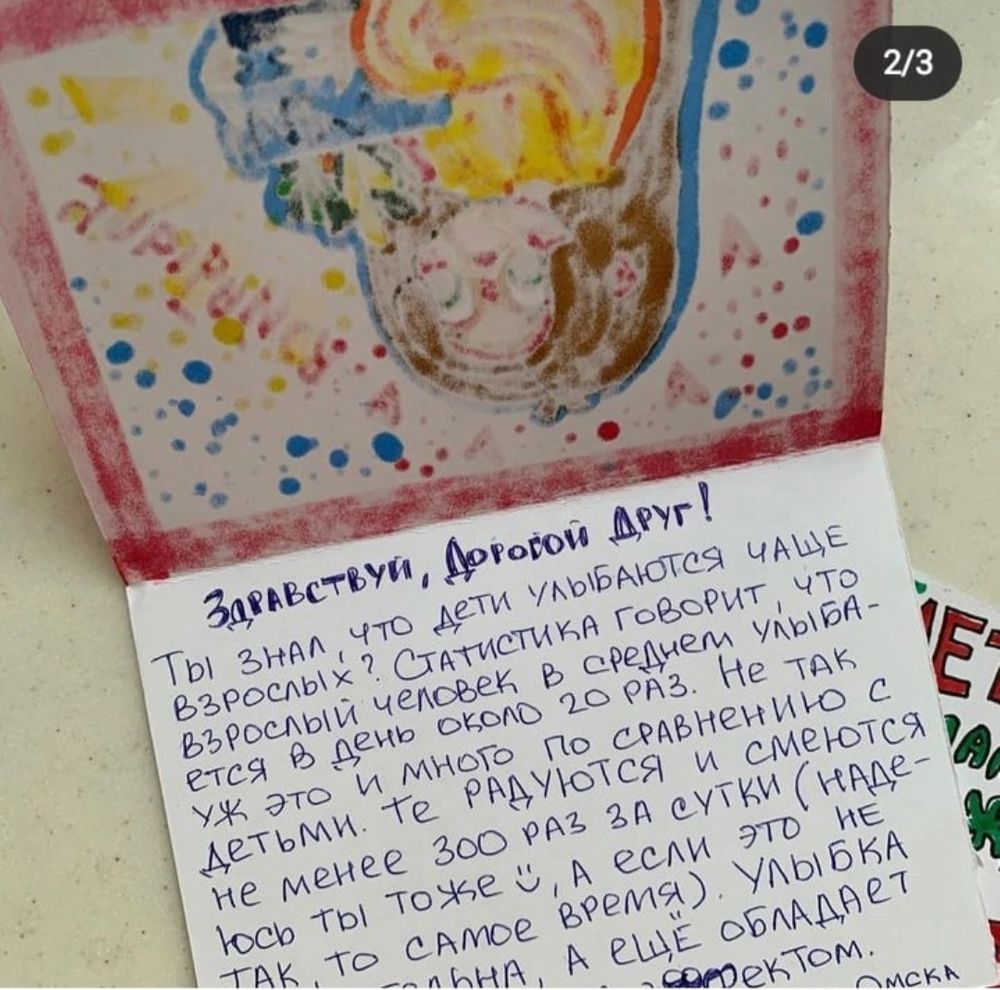 2/3
Здравствуй, Дорогой Друг!
Ты знал, что дети улыбаются чаще
взрослых? Статистика говорит, что
взрослый человек в среднем улыба-
ется в день около 20 раз. Не так
уж это и много по сравнению с
детьми. Те радуются и смеются
не менее 300 раз за сутки (наде-
юсь ты тоже, а если это не
так, то самое время). Улыбка
а ещё обладает
Омска